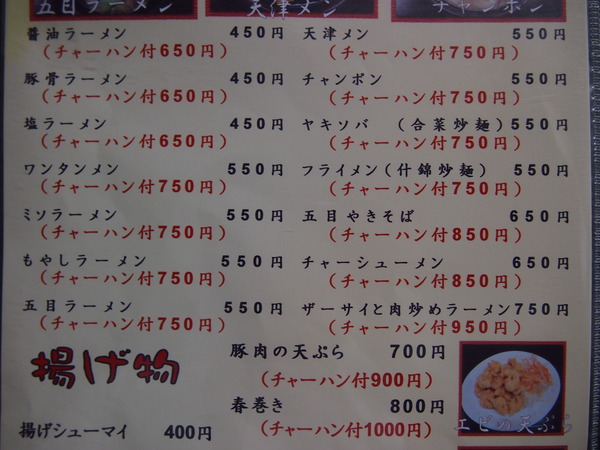 五目ラーメン
天津メン
チャンポン
醤油ラーメン 450円
(チャーハン付650円)
豚骨ラーメン 450円
(チャーハン付650円)
塩ラーメン 450円
(チャーハン付650円)
ワンタンメン 550円
(チャーハン付750円)
ミソラーメン 550円
(チャーハン付750円)
もやしラーメン 550円
(チャーハン付750円)
五目ラーメン 550円
(チャーハン付750円)
天津メン 550円
(チャーハン付750円)
チャンポン 550円
(チャーハン付750円)
ヤキソバ (合菜炒麺) 550円
(チャーハン付750円)
フライメン(什錦炒麺) 550円
(チャーハン付750円)
五目やきそば 650円
(チャーハン付850円)
チャーシューメン 650円
(チャーハン付850円)
ザーサイと肉炒めラーメン750円
(チャーハン付950円)
揚げ物
揚げシューマイ 400円
豚肉の天ぷら 700円
(チャーハン付900円)
春巻き 800円
(チャーハン付1000円)
エビの天ぷら